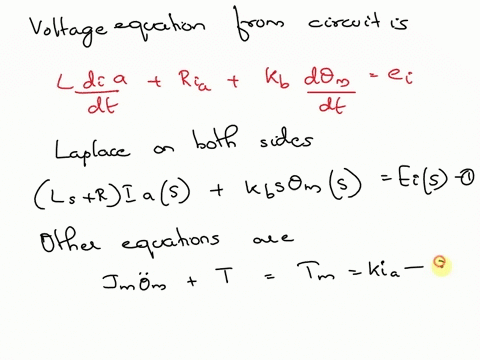 Voltage equation from circuit is
L dia/dt + Ria + Kb dθm/dt = ei
Laplace on both sides
(Ls+R)Ia(s) + kbsθm(s) = Ei(s)-①
Other equations are
Jmθ̈m + T = Tm = kia —